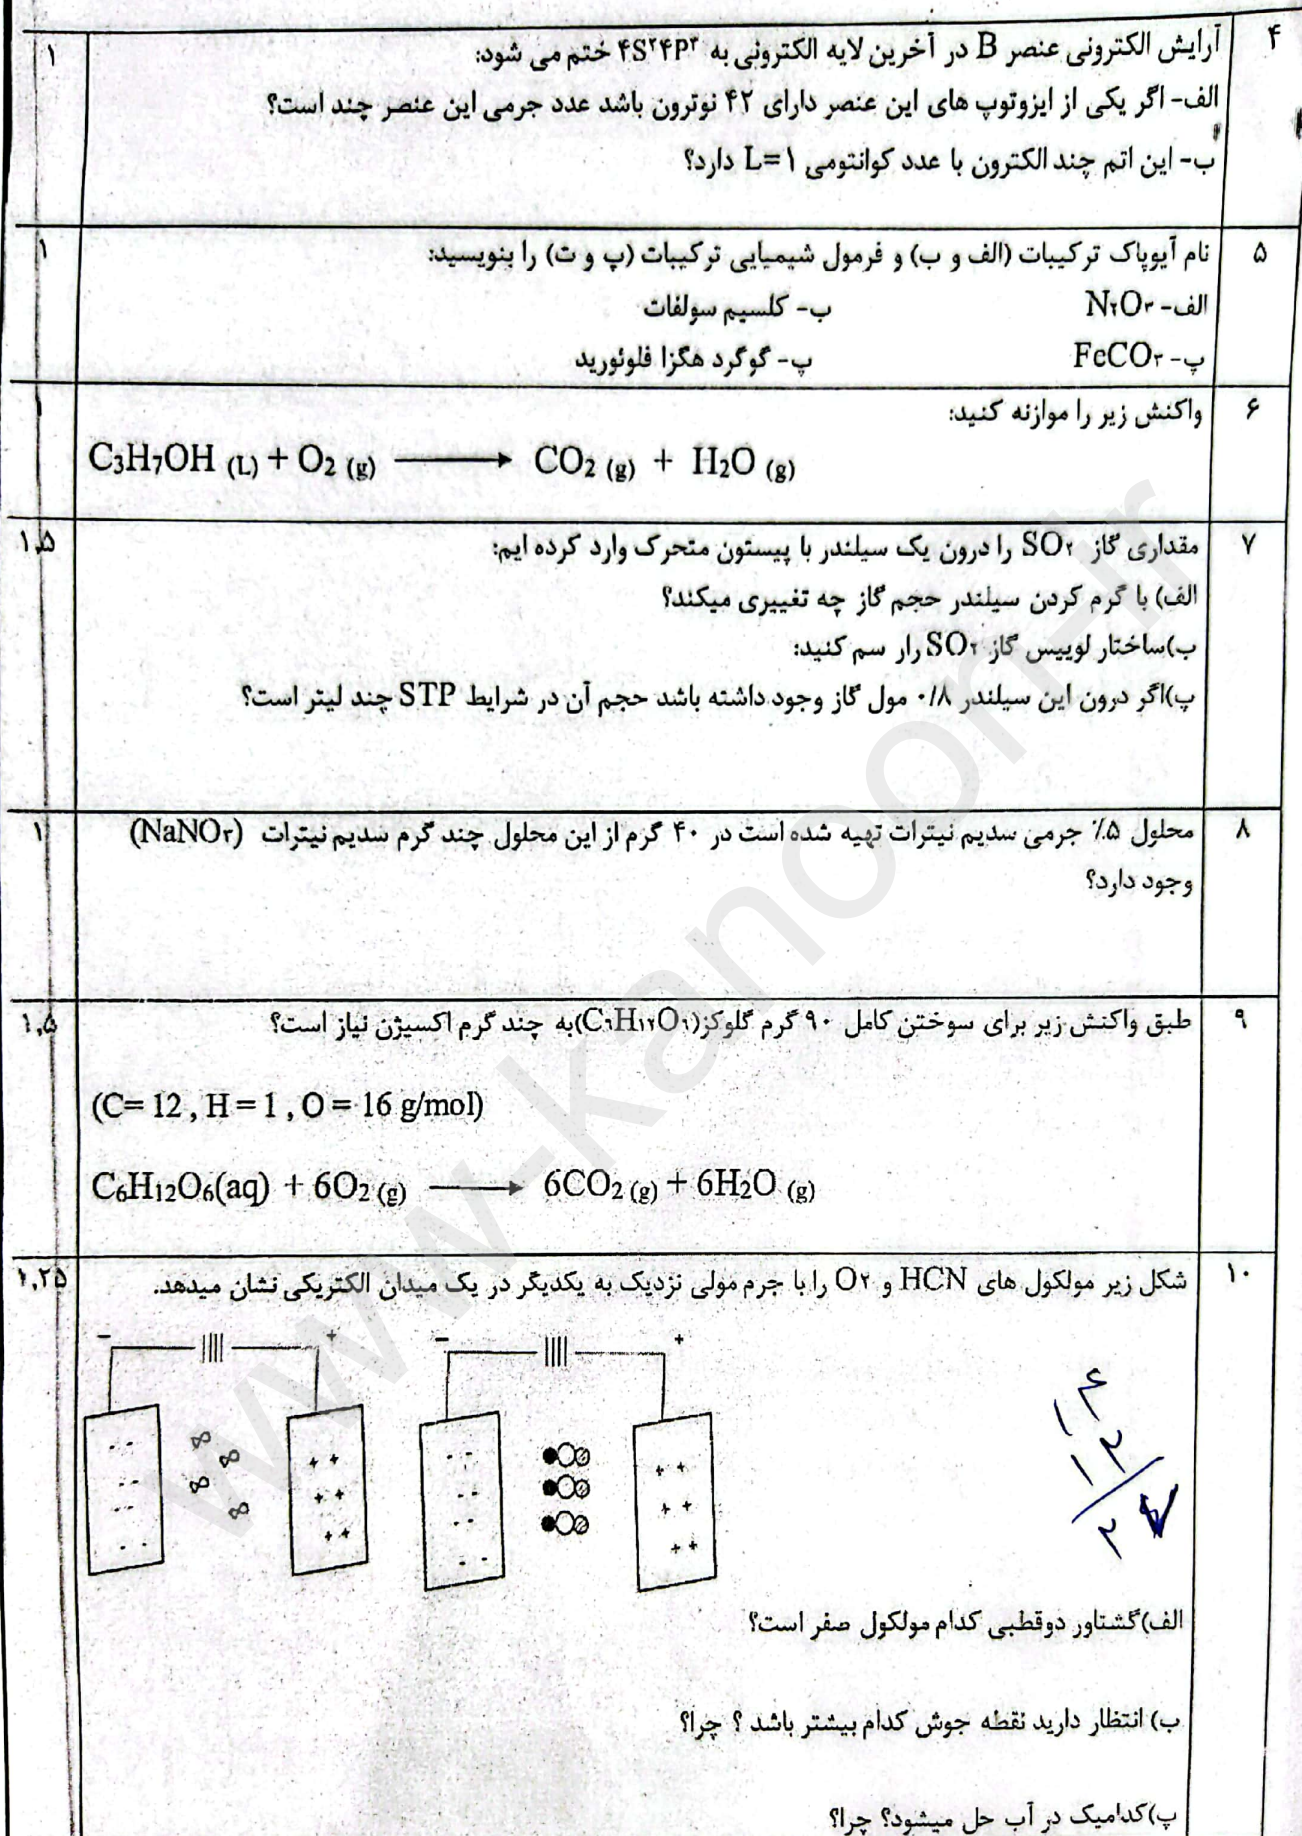 ۴ آرایش الکترونی عنصر B در آخرین لایه الکترونی به ۴S۲۴P۳ ختم می شود: ۱
الف- اگر یکی از ایزوتوپ های این عنصر دارای ۴۲ نوترون باشد عدد جرمی این عنصر چند است؟
ب- این اتم چند الکترون با عدد کوانتومی L=۱ دارد؟
۵ نام آیوپاک ترکیبات (الف و ب) و فرمول شیمیایی ترکیبات (پ و ت) را بنویسید: ۱
الف- N۲O۳ ب- کلسیم سولفات
پ- FeCO۳ پ- گوگرد هگزا فلوئورید
۶ واکنش زیر را موازنه کنید: ۱
C3H7OH (L) + O2 (g) ⟶ CO2 (g) + H2O (g)
۷ مقداری گاز SO۲ را درون یک سیلندر با پیستون متحرک وارد کرده ایم: ۱,۵
الف) با گرم کردن سیلندر حجم گاز چه تغییری میکند؟
ب)ساختار لوییس گاز SO۲ رار سم کنید:
پ)اگر درون این سیلندر ۰/۸ مول گاز وجود داشته باشد حجم آن در شرایط STP چند لیتر است؟
۸ محلول ۵٪ جرمی سدیم نیترات تهیه شده است در ۴۰ گرم از این محلول چند گرم سدیم نیترات (NaNO۳) ۱
وجود دارد؟
۹ طبق واکنش زیر برای سوختن کامل ۹۰ گرم گلوکز(C۶H۱۲O۶)به چند گرم اکسیژن نیاز است؟ ۱,۵
(C= 12 , H = 1 , O = 16 g/mol)
C6H12O6(aq) + 6O2 (g) ⟶ 6CO2 (g) + 6H2O (g)
۱۰ شکل زیر مولکول های HCN و O۲ را با جرم مولی نزدیک به یکدیگر در یک میدان الکتریکی نشان میدهد. ۱,۲۵
الف)گشتاور دوقطبی کدام مولکول صفر است؟
ب) انتظار دارید نقطه جوش کدام بیشتر باشد ؟ چرا؟
پ)کدامیک در آب حل میشود؟ چرا؟
www-kanoon-ir